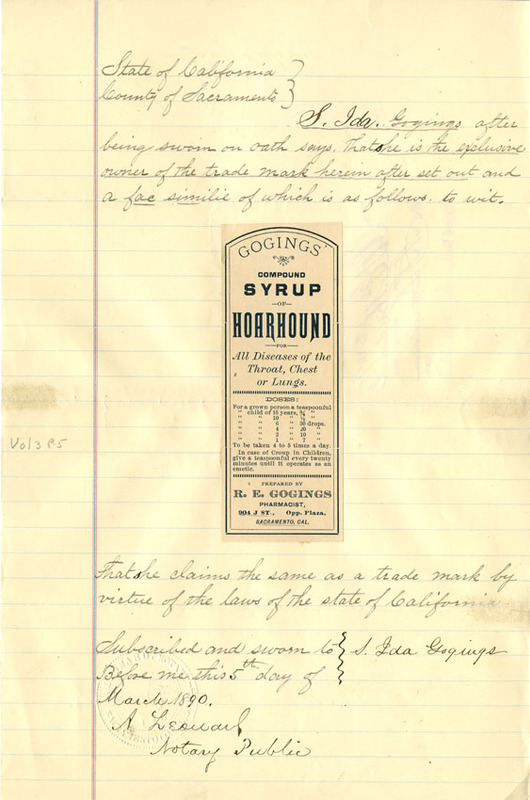 State of California }
County of Sacramento }
S. Ida. Gogings after
being sworn on oath says, that she is the exclusive
owner of the trade mark herein after set out and
a fac similie of which is as follows. to wit.
GOGINGS'
COMPOUND
SYRUP
—OF—
HOARHOUND
—FOR—
All Diseases of the
Throat, Chest
or Lungs.
DOSES:
For a grown person a teaspoonful
" child of 15 years, ¾ "
" " 10 " ½ "
" " 6 " 30 drops.
" " 4 " 20 "
" " 2 " 10 "
" " 1 " 7 "
To be taken 4 to 5 times a day.
In case of Croup in Children,
give a teaspoonful every twenty
minutes until it operates as an
emetic.
PREPARED BY
R. E. GOGINGS
PHARMACIST,
904 J ST., Opp. Plaza,
SACRAMENTO, CAL.
Vol 3 P5
That she claims the same as a trade mark by
virtue of the laws of the state of California
Subscribed and sworn to } S. Ida Gogings
Before me this 5th day of
March 1890.
A Leonard
Notary Public